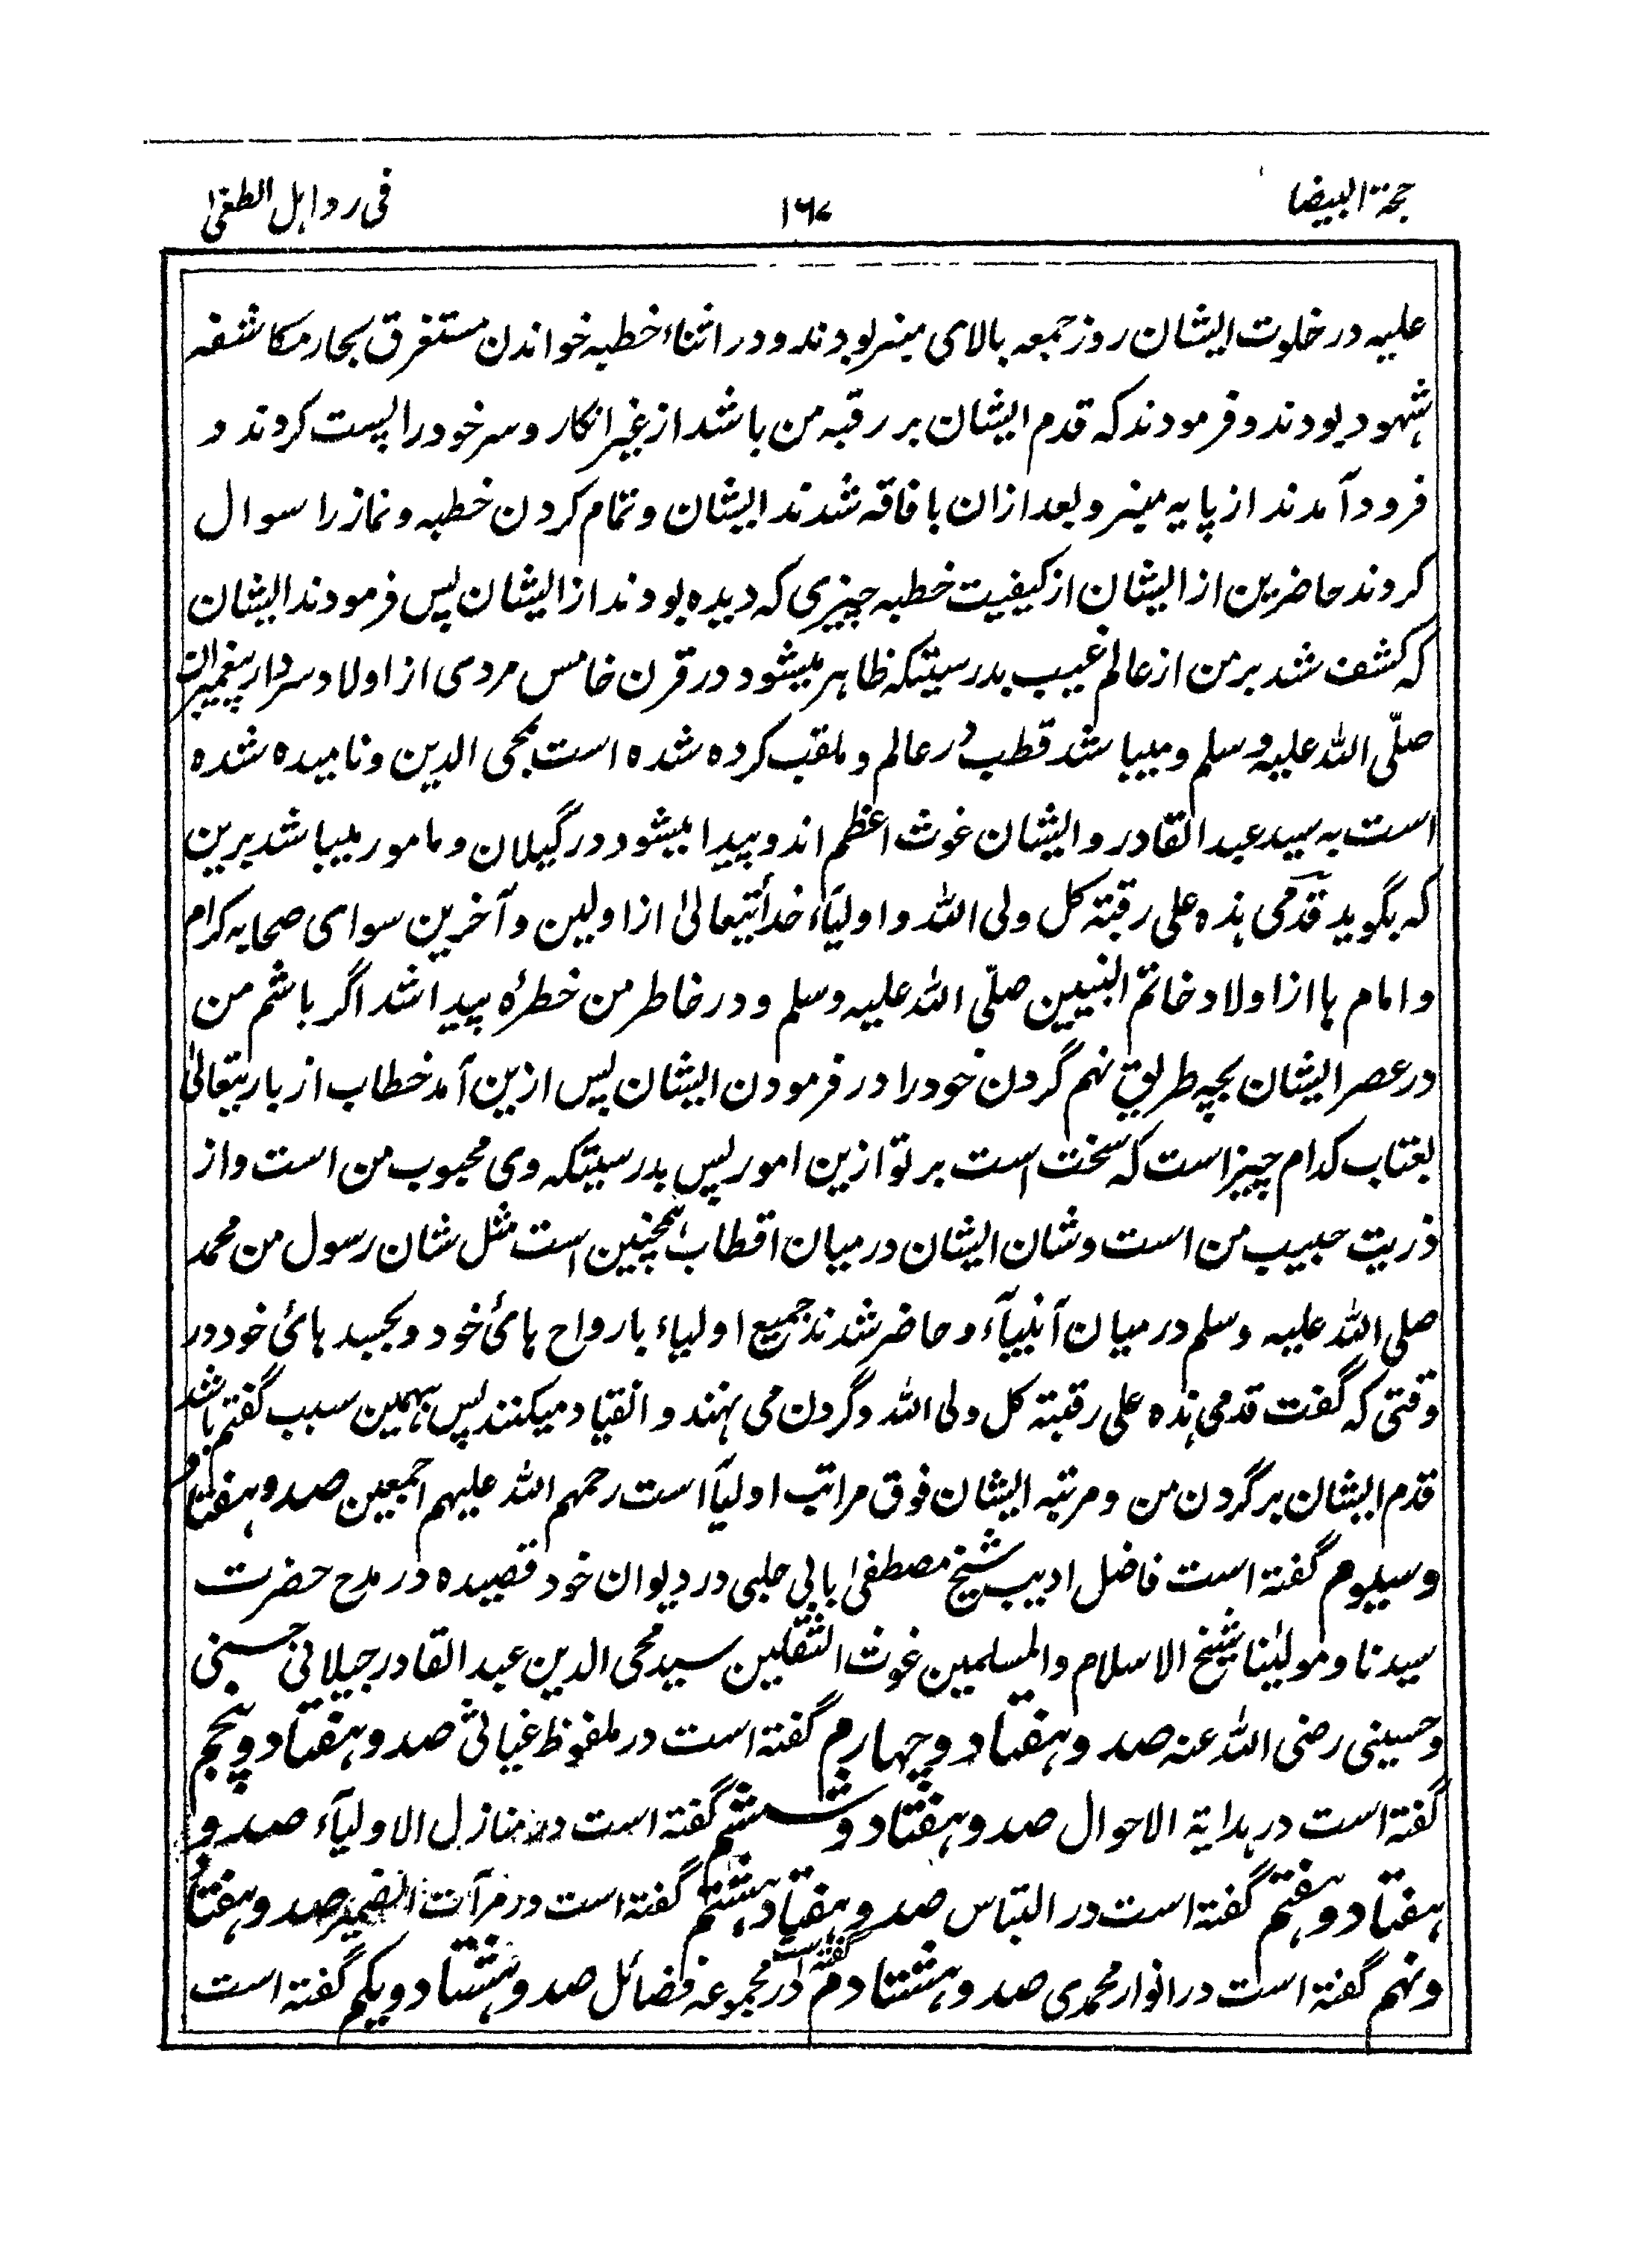 حجة البیضا
۱۶۷
فی رد اہل الطغیٰ
علیہ در خلوت ایشان روز جمعہ بالای منبر بودند و در اثناء خطبہ خواندن مستغرق بحار مکاشفہ
شہود بودند و فرمودند کہ قدم ایشان بر رقبہ من باشد از غیر انکار و سر خود را پست کردند و
فرود آمدند از پایہ منبر و بعد ازان بافاقہ شدند ایشان و تمام کردن خطبہ و نماز را سوال
کردند حاضرین از ایشان از کیفیت خطبہ چیزی کہ دیدہ بودند از ایشان پس فرمودند ایشان
کہ کشف شد بر من از عالم غیب بدرستیکہ ظاہر میشود در قرن خامس مردی از اولاد سردار پیغمبران
صلّی اللہ علیہ وسلم و میباشد قطب در عالم و ملقب کردہ شدہ است بمحی الدین و نامیدہ شدہ
است بہ سید عبد القادر و ایشان غوث اعظم اند و پیدا میشود در گیلان و مامور میباشد برین
کہ بگوید قدمی ہذہ علی رقبة کل ولی اللہ و اولیآء خدا تیعالیٰ از اولین و آخرین سوای صحابہ کرام
و امام ہا از اولاد خاتم النبیین صلّی اللہ علیہ وسلم و در خاطر من خطرہ پیدا شد اگر باشم من
در عصر ایشان بچہ طریق نہم گردن خود را در فرمودن ایشان پس ازین آمد خطاب از باریتعالیٰ
بعتاب کدام چیز است کہ سخت است بر تو ازین امور پس بدرستیکہ وی محبوب من است و از
ذریت حبیب من است و شان ایشان در میان اقطاب ہمچنین است مثل شان رسول من محمد
صلی اللہ علیہ وسلم در میان آنبیآء و حاضر شدند جمیع اولیاء بارواح ہائ خود و بجسد ہائ خود در
وقتی کہ گفت قدمی ہذہ علی رقبة کل ولی اللہ و گردن می نہند و انقیاد میکنند پس بہمین سبب گفتم باشد
قدم ایشان بر گردن من و مرتبہ ایشان فوق مراتب اولیآ است رحمہم اللہ علیہم اجمعین صد و ہفتاد
و سیوم گفتہ است فاضل ادیب شیخ مصطفیٰ بابی حلبی در دیوان خود قصیدہ در مدح حضرت
سیدنا و مولینا شیخ الاسلام والمسلمین غوث الثقلین سید محی الدین عبد القادر جیلانی حسنی
و حسینی رضی اللہ عنہ صد و ہفتاد و چہارم گفتہ است در ملفوظ غیاثی صد و ہفتاد و پنجم
گفتہ است در ہدایة الاحوال صد و ہفتاد و ششم گفتہ است در منازل الاولیآء صد و
ہفتاد و ہفتم گفتہ است در التباس صد و ہفتاد ہشتم گفتہ است در مرآت الضمیر صد و ہفتاد
و نہم گفتہ است در انوار محمدی صد و ہشتادم گفتہ است در مجموعہ فضائل صد و ہشتاد و یکم گفتہ است